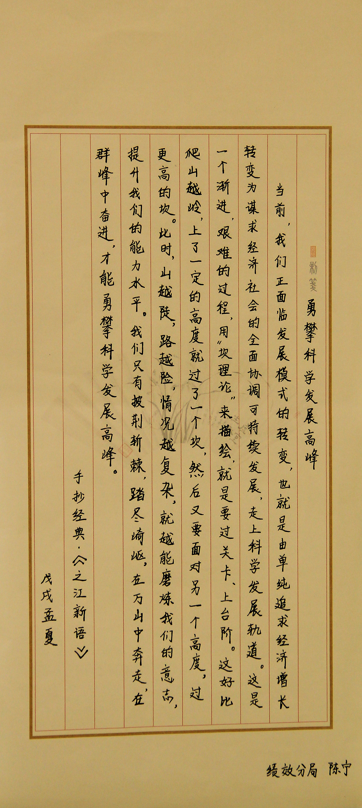 勇攀科学发展高峰
当前，我们正面临发展模式的转变，也就是由单纯追求经济增长
转变为谋求经济社会的全面协调可持续发展，走上科学发展轨道。这是
一个渐进、艰难的过程，用“坎理论”来描绘，就是要过关卡、上台阶。这好比
爬山越岭，上了一定的高度就过了一个坎，然后又要面对另一个高度，过
更高的坎。此时，山越陡，路越险，情况越复杂，就越能磨炼我们的意志，
提升我们的能力水平。我们只有披荆斩棘，踏尽崎岖，在万山中奔走，在
群峰中奋进，才能勇攀科学发展高峰。
手抄经典·《之江新语》
戊戌孟夏
绩效分局 陈宁